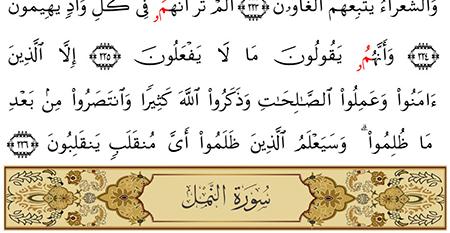 وَالشُّعَرَآءُ يَتَّبِعُهُمُ الْغَاوُۥنَ ٢٢٣ أَلَمْ تَرَ أَنَّهُمُۥ فِى كُلِّ وَادٍ يَهِيمُونَ
٢٢٤ وَأَنَّهُمُۥ يَقُولُونَ مَا لَا يَفْعَلُونَ ٢٢٥ إِلَّا ٱلَّذِينَ
ءَامَنُواْ وَعَمِلُواْ ٱلصَّـٰلِحَـٰتِ وَذَكَرُواْ ٱللَّهَ كَثِيرًا وَٱنتَصَرُواْ مِنۢ بَعْدِ
مَا ظُلِمُواْ ۗ وَسَيَعْلَمُ ٱلَّذِينَ ظَلَمُواْ أَىَّ مُنقَلَبٍ يَنقَلِبُونَ ٢٢٦
سُورَةُ النَّمْلِ